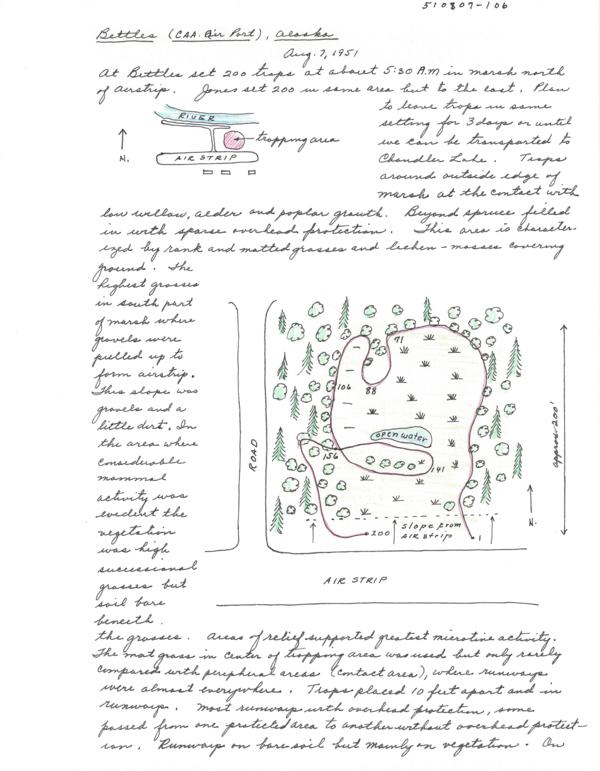 510807-106
Bettles (CAA. Air Port), Alaska
Aug. 7, 1951
At Bettles set 200 traps at about 5:30 A.M in marsh north
of airstrip. Jones set 200 in same area but to the east. Plan
to leave traps in same
setting for 3 days or until
we can be transported to
Chandler Lake. Traps
around outside edge of
marsh at the contact with
RIVER
trapping area
N.
AIR STRIP
low willow, alder and poplar growth. Beyond spruce filled
in with sparse overhead protection. This area is character-
ized by rank and matted grasses and lichen-mosses covering
ground. The
highest grasses
in south part
of marsh where
gravels were
pulled up to
form airstrip.
This slope was
gravels and a
little dirt. In
the area where
considerable
mammal
activity was
evident the
vegetation
was high
successional
grasses but
soil bare
beneath
71
106
88
open water
156
141
ROAD
approx. 200'
N.
200
slope from
AIR strip
1
AIR STRIP
the grasses. Areas of relief supported greatest microtine activity.
The mat grass in center of trapping area was used but only rarely
compared with peripheral areas (contact area), where runways
were almost everywhere. Traps placed 10 feet apart and in
runways. Most runways with overhead protection, some
passed from one protected area to another without overhead protect-
ion. Runways on bare soil but mainly on vegetation. On